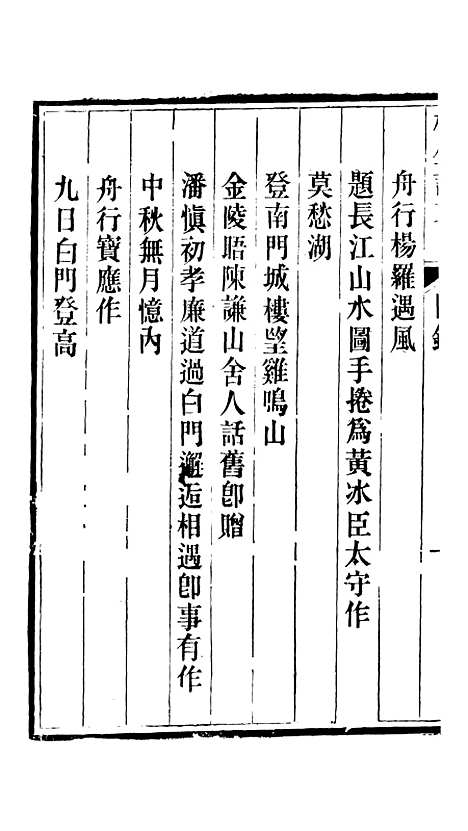 舟行楊羅遇風
題長江山水圖手捲為黃冰臣太守作
莫愁湖
登南門城樓望雞鳴山
金陵晤陳謙山舍人話舊卽贈
潘愼初孝廉道過白門邂逅相遇卽事有作
中秋無月憶內
舟行寶應作
九日白門登高